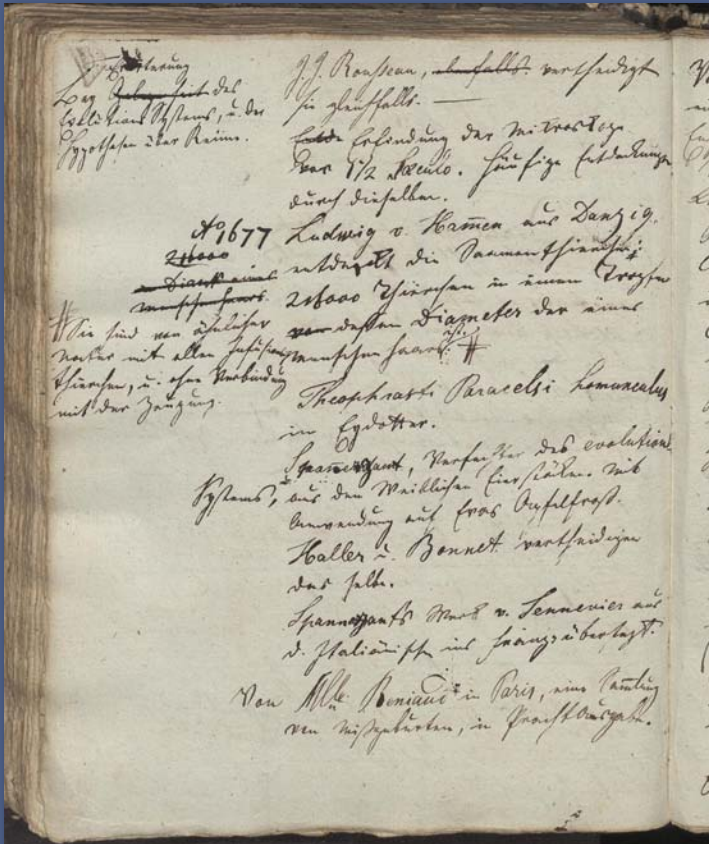 Erörterung
Bey des
Evolutions Systems, u. der
Hypothesen über Keime.
J. J. Rousseau, ebenfalls vertheidigt
sie gleichfalls. —
Erfindung der Microskope
vor 1 1/2 Seculo. Häufige Entdeckungen
durch dieselben.
Aº 1677
Ludwig v. Hammen aus Danzig.
entdeckt die Saamenthierchen:
216000
eines
menschenhaars.
216000 Thierchen in einem Tropfen
dessen Diameter der eines
menschenhaars ist. #
# Sie sind von ähnlicher
Natur mit allen Infusions
thierchen, u. ohne Verbindung
mit der Zeugung.
Theophrasti Paracelsi homunculus
im Eydotter.
Verfechter des evolutions
Systems, aus den Weiblichen Eierstöcken. Mit
Anwendung auf Evas
Haller u. Bonnet vertheidigen
das selbe.
Werk v. Sennevier aus
d. Italiänischen ins übersetzt.
Von in Paris, eine Sammlung
von Mißgeburten, in Pracht Ausgabe.